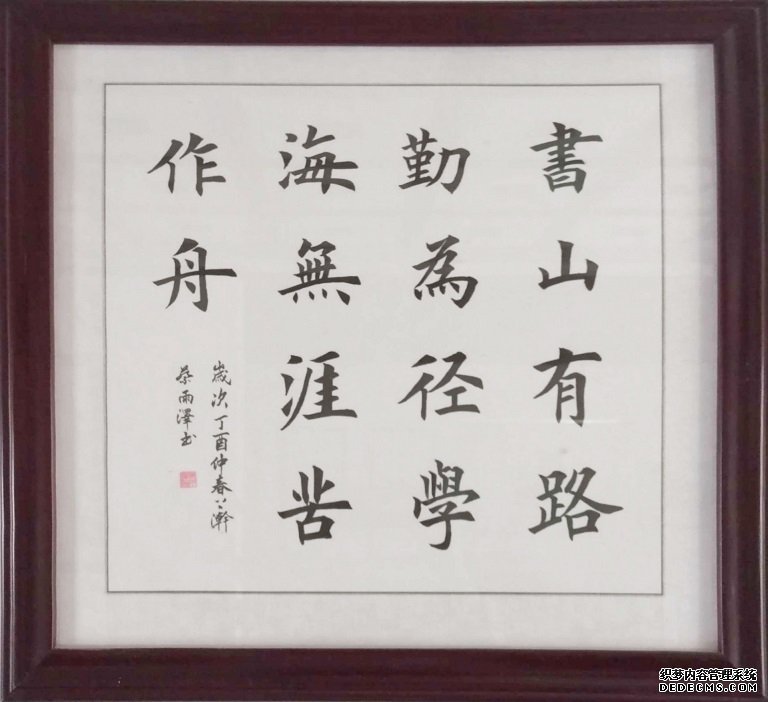 書山有路
勤為径學
海無涯苦
作舟
歲次丁酉仲春上澣
蔡雨澤书
织梦内容管理系统
DEDECMS.COM